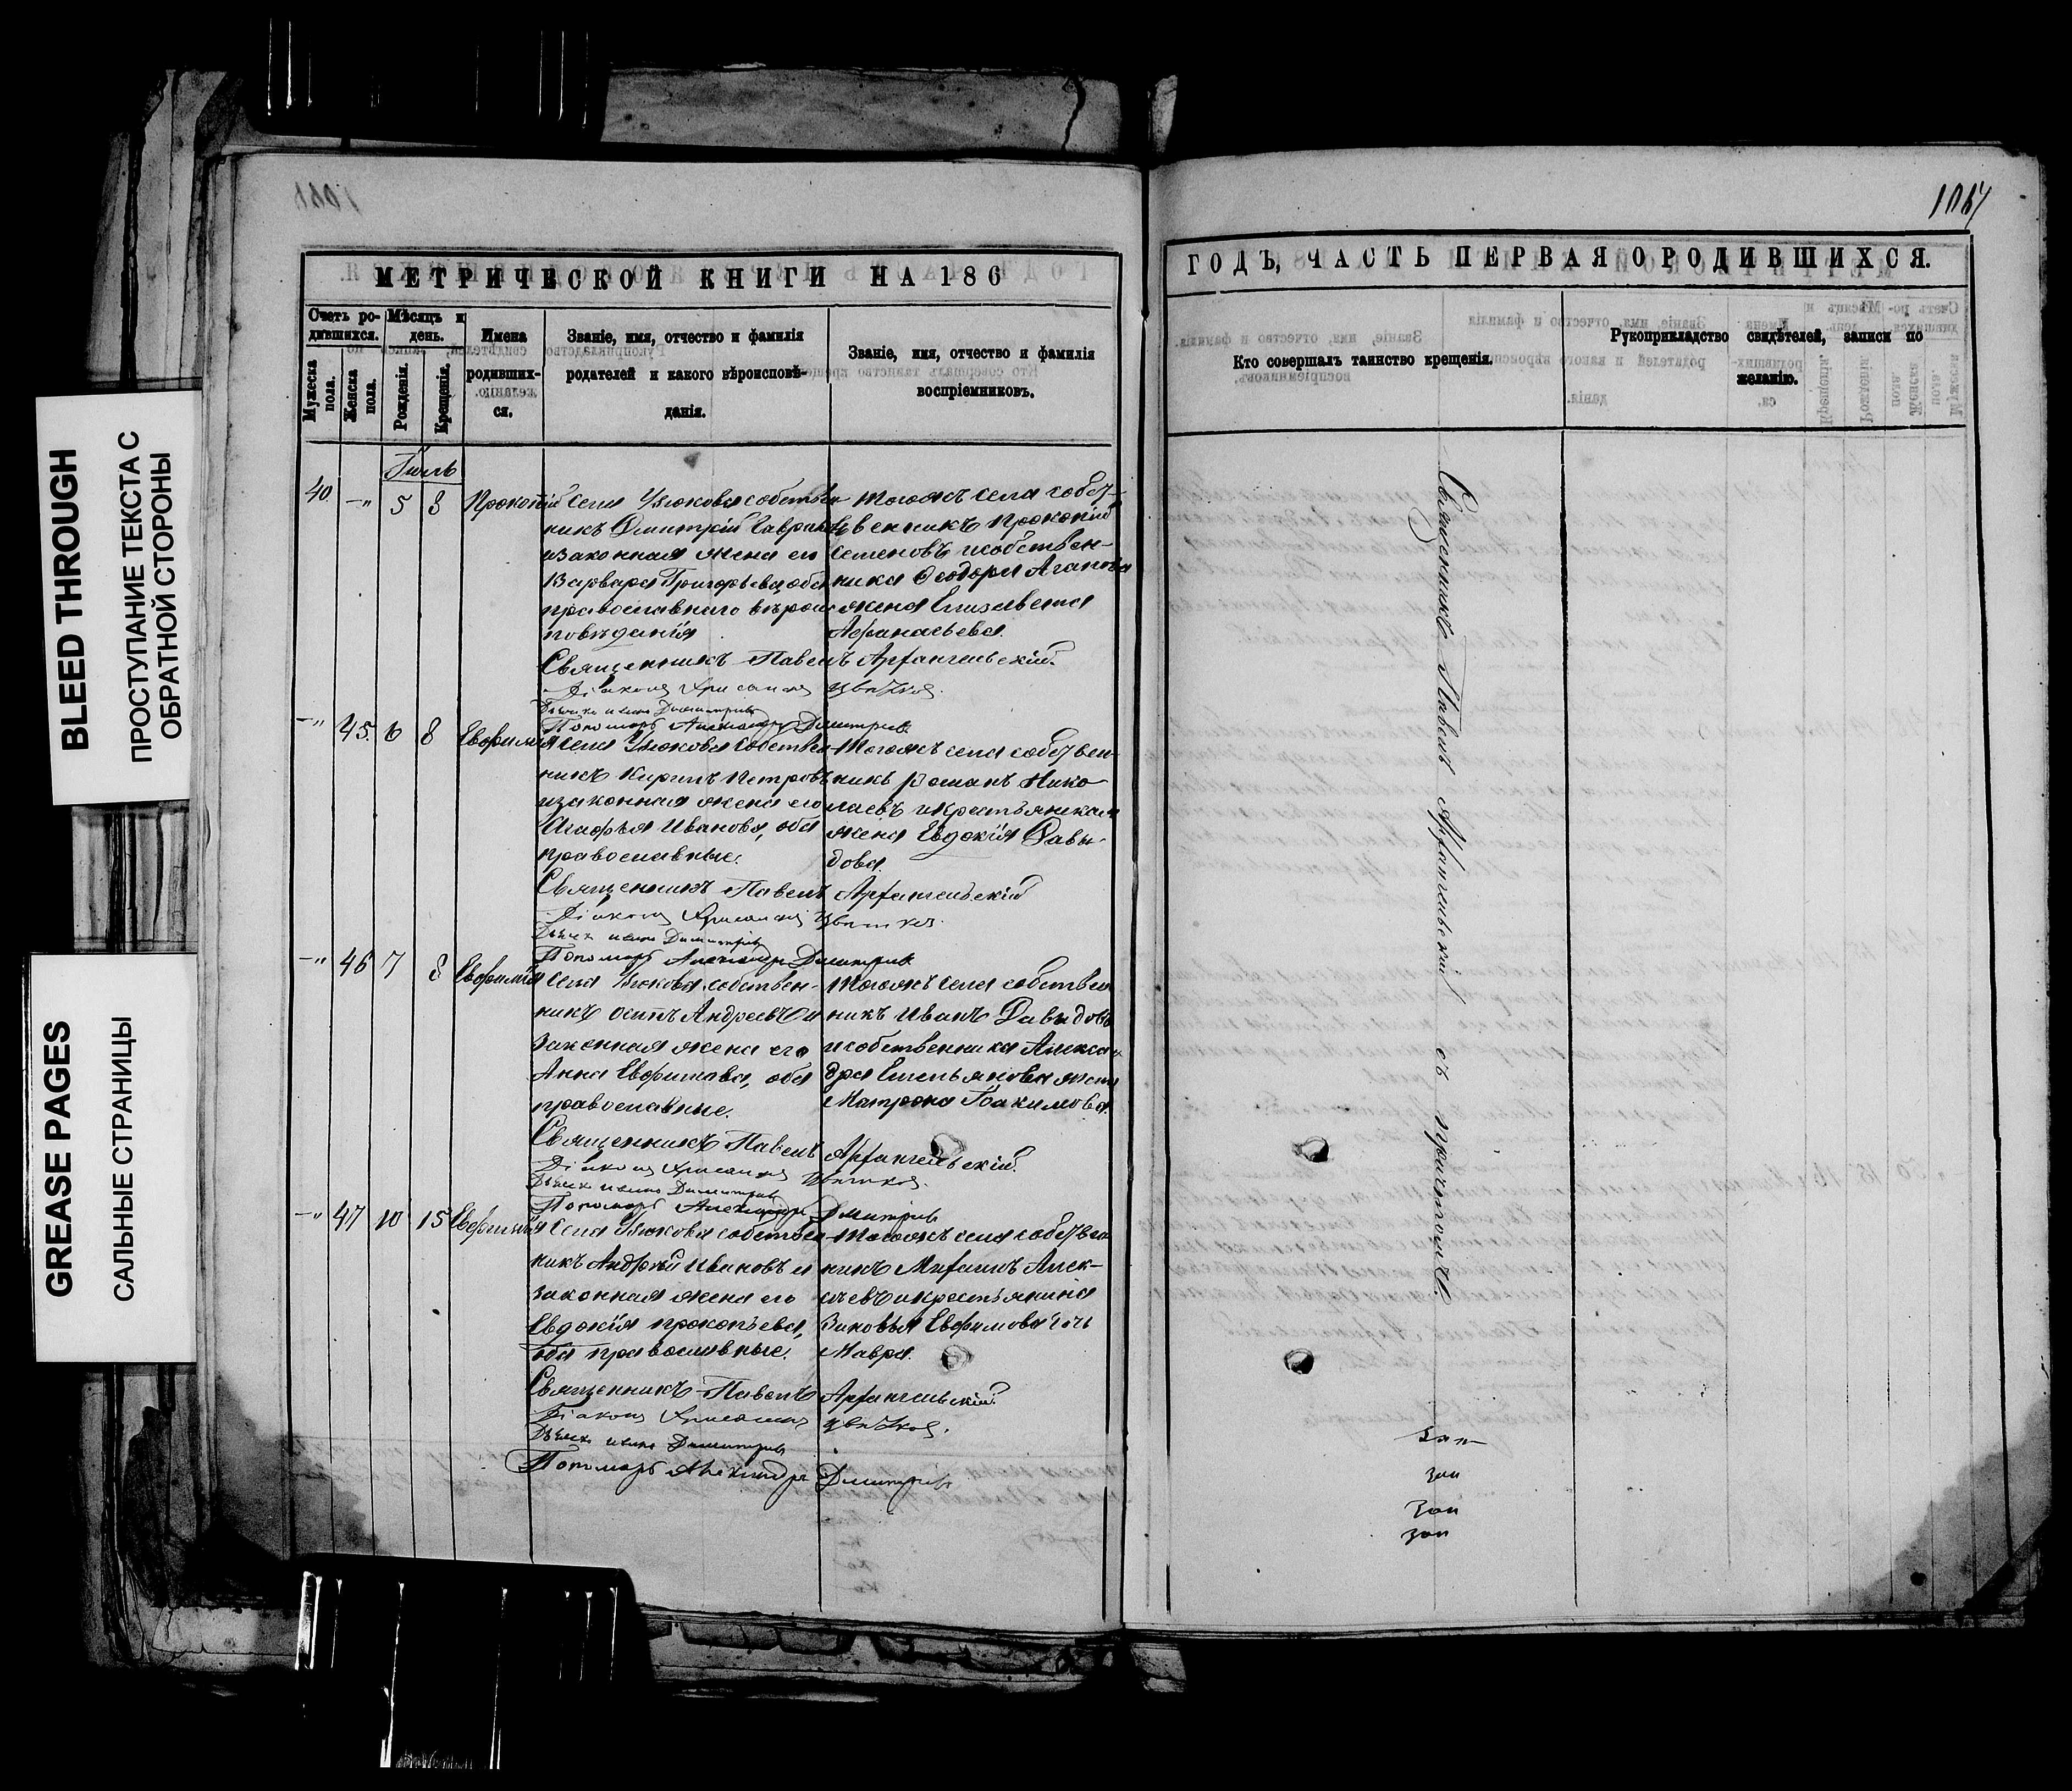 1067
МЕТРИЧЕСКОЙ КНИГИ НА 186
ГОДЪ, ЧАСТЬ ПЕРВАЯ О РОДИВШИХСЯ.
Счетъ ро-
дившихся.
Мужеска
пола.
Женска
пола.
Мѣсяцъ и
день.
Рожденія.
Крещенія.
Имена
родивших-
ся.
Званіе, имя, отчество и фамилія
родителей и какого вѣроисповѣ-
данія.
Званіе, имя, отчество и фамилія
воспріемниковъ.
Кто совершалъ таинство крещенія.
Рукоприкладство свидѣтелей, записи по
желанію.
40 —„ 5 8 Прокопій
Села собствен-
никъ Дмитрій
и законная жена его
Варвара Григорьева, оба
православнаго вѣроис-
повѣданія
Тогожъ села собст-
венникъ Прокопій
Семеновъ и собствен-
ника Ѳеодора Агапова
жена Елизавета
Афанасьева.
Священникъ Павелъ Архангельскій.
Діаконъ
Димитріевъ
Пономарь Александръ Дмитріев
—„ 45. 6 8 Евфимія
Села собствен-
никъ Кирилъ Петровъ
и законная жена его
Агафья Иванова, оба
православные.
Тогожъ села собствен-
никъ Романъ Нико-
лаевъ и
жена Евдокія Давы-
дова.
Священникъ Павелъ Архангельскій
Діаконъ
Димитріевъ
Пономарь Александръ Дмитріев
—„ 46 7 8 Евфимія
Села собствен-
никъ Осипъ Андреевъ и
законная жена его
Анна Евфимова, оба
православные.
Тогожъ села собствен
никъ Иванъ Давыдовъ
и собственника Алексан
дра Емельянова жена
Матрона Іоакимова.
Священникъ Павелъ Архангельскій.
Діаконъ
Димитріевъ
Пономарь Александръ Дмитріев
—„ 47 10 15 Евфимія
Села собствен-
никъ Андрей Ивановъ и
законная жена его
Евдокія Прокопьева,
оба православные.
Тогожъ села собствен
никъ Михаилъ Алек-
сѣевъ и крестьянина
Зиновья Евфимова дочь
Мавра.
Священникъ Павелъ Архангельскій.
Діаконъ
Димитріевъ
Пономарь Александръ Дмитріев
Священникъ Павелъ Архангельскій съ причтомъ.
BLEED THROUGH
ПРОСТУПАНИЕ ТЕКСТА С
ОБРАТНОЙ СТОРОНЫ
GREASE PAGES
САЛЬНЫЕ СТРАНИЦЫ